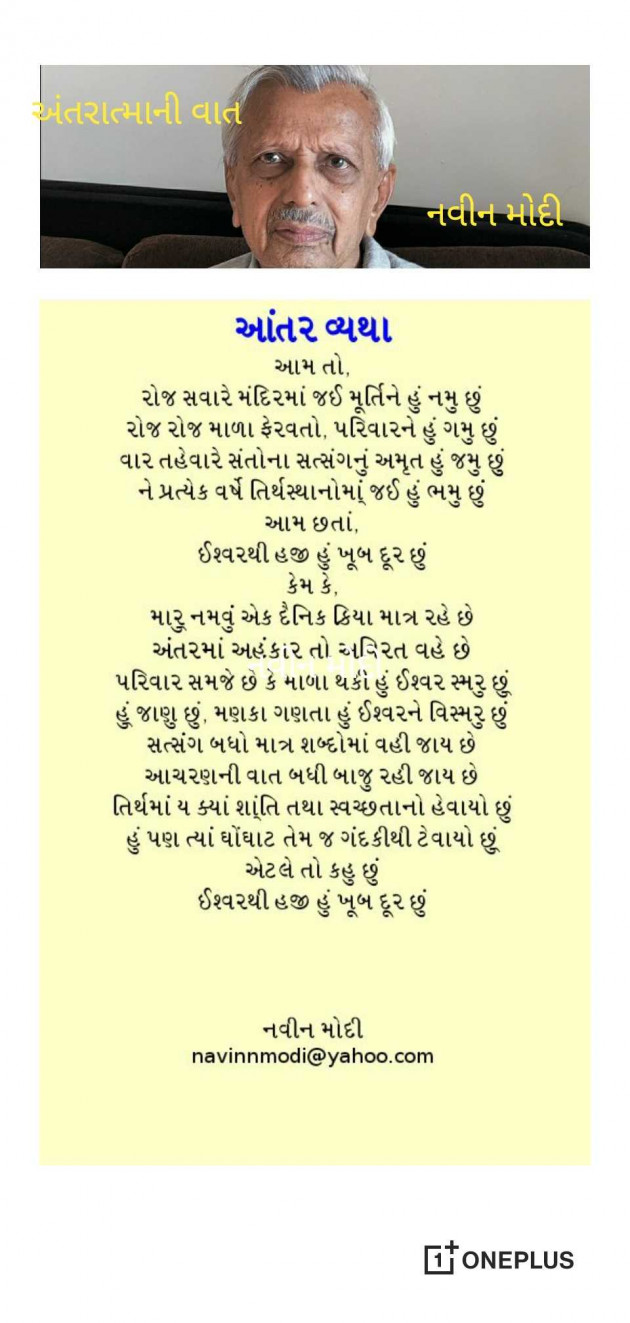 અંતરાત્માની વાત
નવીન મોદી
આંતર વ્યથા
આમ તો,
રોજ સવારે મંદિરમાં જઈ મૂર્તિને હું નમુ છું
રોજ રોજ માળા ફેરવતો, પરિવારને હું ગમુ છું
વાર તહેવારે સંતોના સત્સંગનું અમૃત હું જમુ છું
ને પ્રત્યેક વર્ષે તિર્થસ્થાનોમાં જઈ હું ભમુ છું
આમ છતાં,
ઈશ્વરથી હજી હું ખૂબ દૂર છું
કેમ કે,
મારુ નમવું એક દૈનિક ક્રિયા માત્ર રહે છે
અંતરમાં અહંકાર તો અવિરત વહે છે
નવીન મોદી
પરિવાર સમજે છે કે માળા થકી હું ઈશ્વર સ્મરુ છું
હું જાણુ છું, મણકા ગણતા હું ઈશ્વરને વિસ્મરુ છું
સત્સંગ બધો માત્ર શબ્દોમાં વહી જાય છે
આચરણની વાત બધી બાજુ રહી જાય છે
તિર્થમાં ય ક્યાં શાંતિ તથા સ્વચ્છતાનો હેવાયો છું
હું પણ ત્યાં ઘોંઘાટ તેમ જ ગંદકીથી ટેવાયો છું
એટલે તો કહુ છું
ઈશ્વરથી હજી હું ખૂબ દૂર છું
નવીન મોદી
navinnmodi@yahoo.com
1+ ONEPLUS